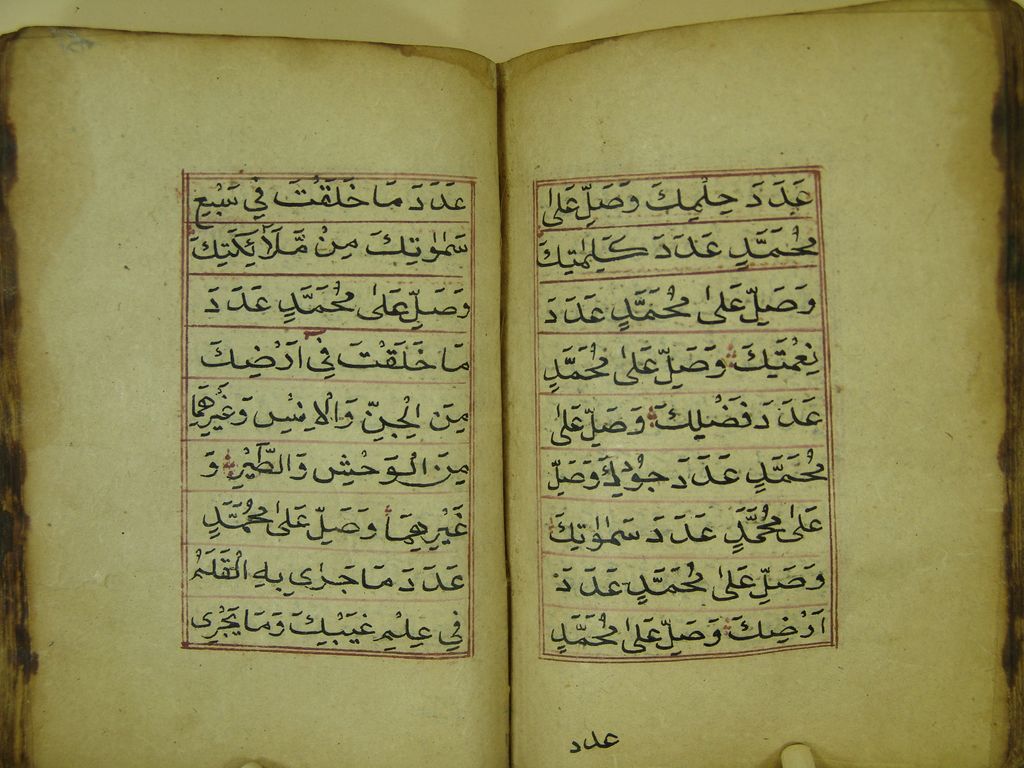 عَدَدَ حِلْمِكَ وَصَلِّ عَلٰى
مُحَمَّدٍ عَدَدَ كَلِمٰتِكَ
وَصَلِّ عَلٰى مُحَمَّدٍ عَدَدَ
نِعْمَتِكَ وَصَلِّ عَلٰى مُحَمَّدٍ
عَدَدَ فَضْلِكَ وَصَلِّ عَلٰى
مُحَمَّدٍ عَدَدَ جُوْدِكَ وَصَلِّ
عَلٰى مُحَمَّدٍ عَدَدَ سَمٰوٰتِكَ
وَصَلِّ عَلٰى مُحَمَّدٍ عَدَدَ
اَرْضِكَ وَصَلِّ عَلٰى مُحَمَّدٍ
عدد
عَدَدَ مَا خَلَقْتَ فِي سَبْعِ
سَمٰوٰتِكَ مِنْ مَّلَائِكَتِكَ
وَصَلِّ عَلٰى مُحَمَّدٍ عَدَدَ
مَا خَلَقْتَ فِي اَرْضِكَ
مِنَ الْجِنِّ وَالْاِنْسِ وَغَيْرِهِمَا
مِنَ الْوَحْشِ وَالطَّيْرِ وَ
غَيْرِهِمَا وَصَلِّ عَلٰى مُحَمَّدٍ
عَدَدَ مَا جَرٰى بِهِ الْقَلَمُ
فِي عِلْمِ غَيْبِكَ وَمَا يَجْرِى